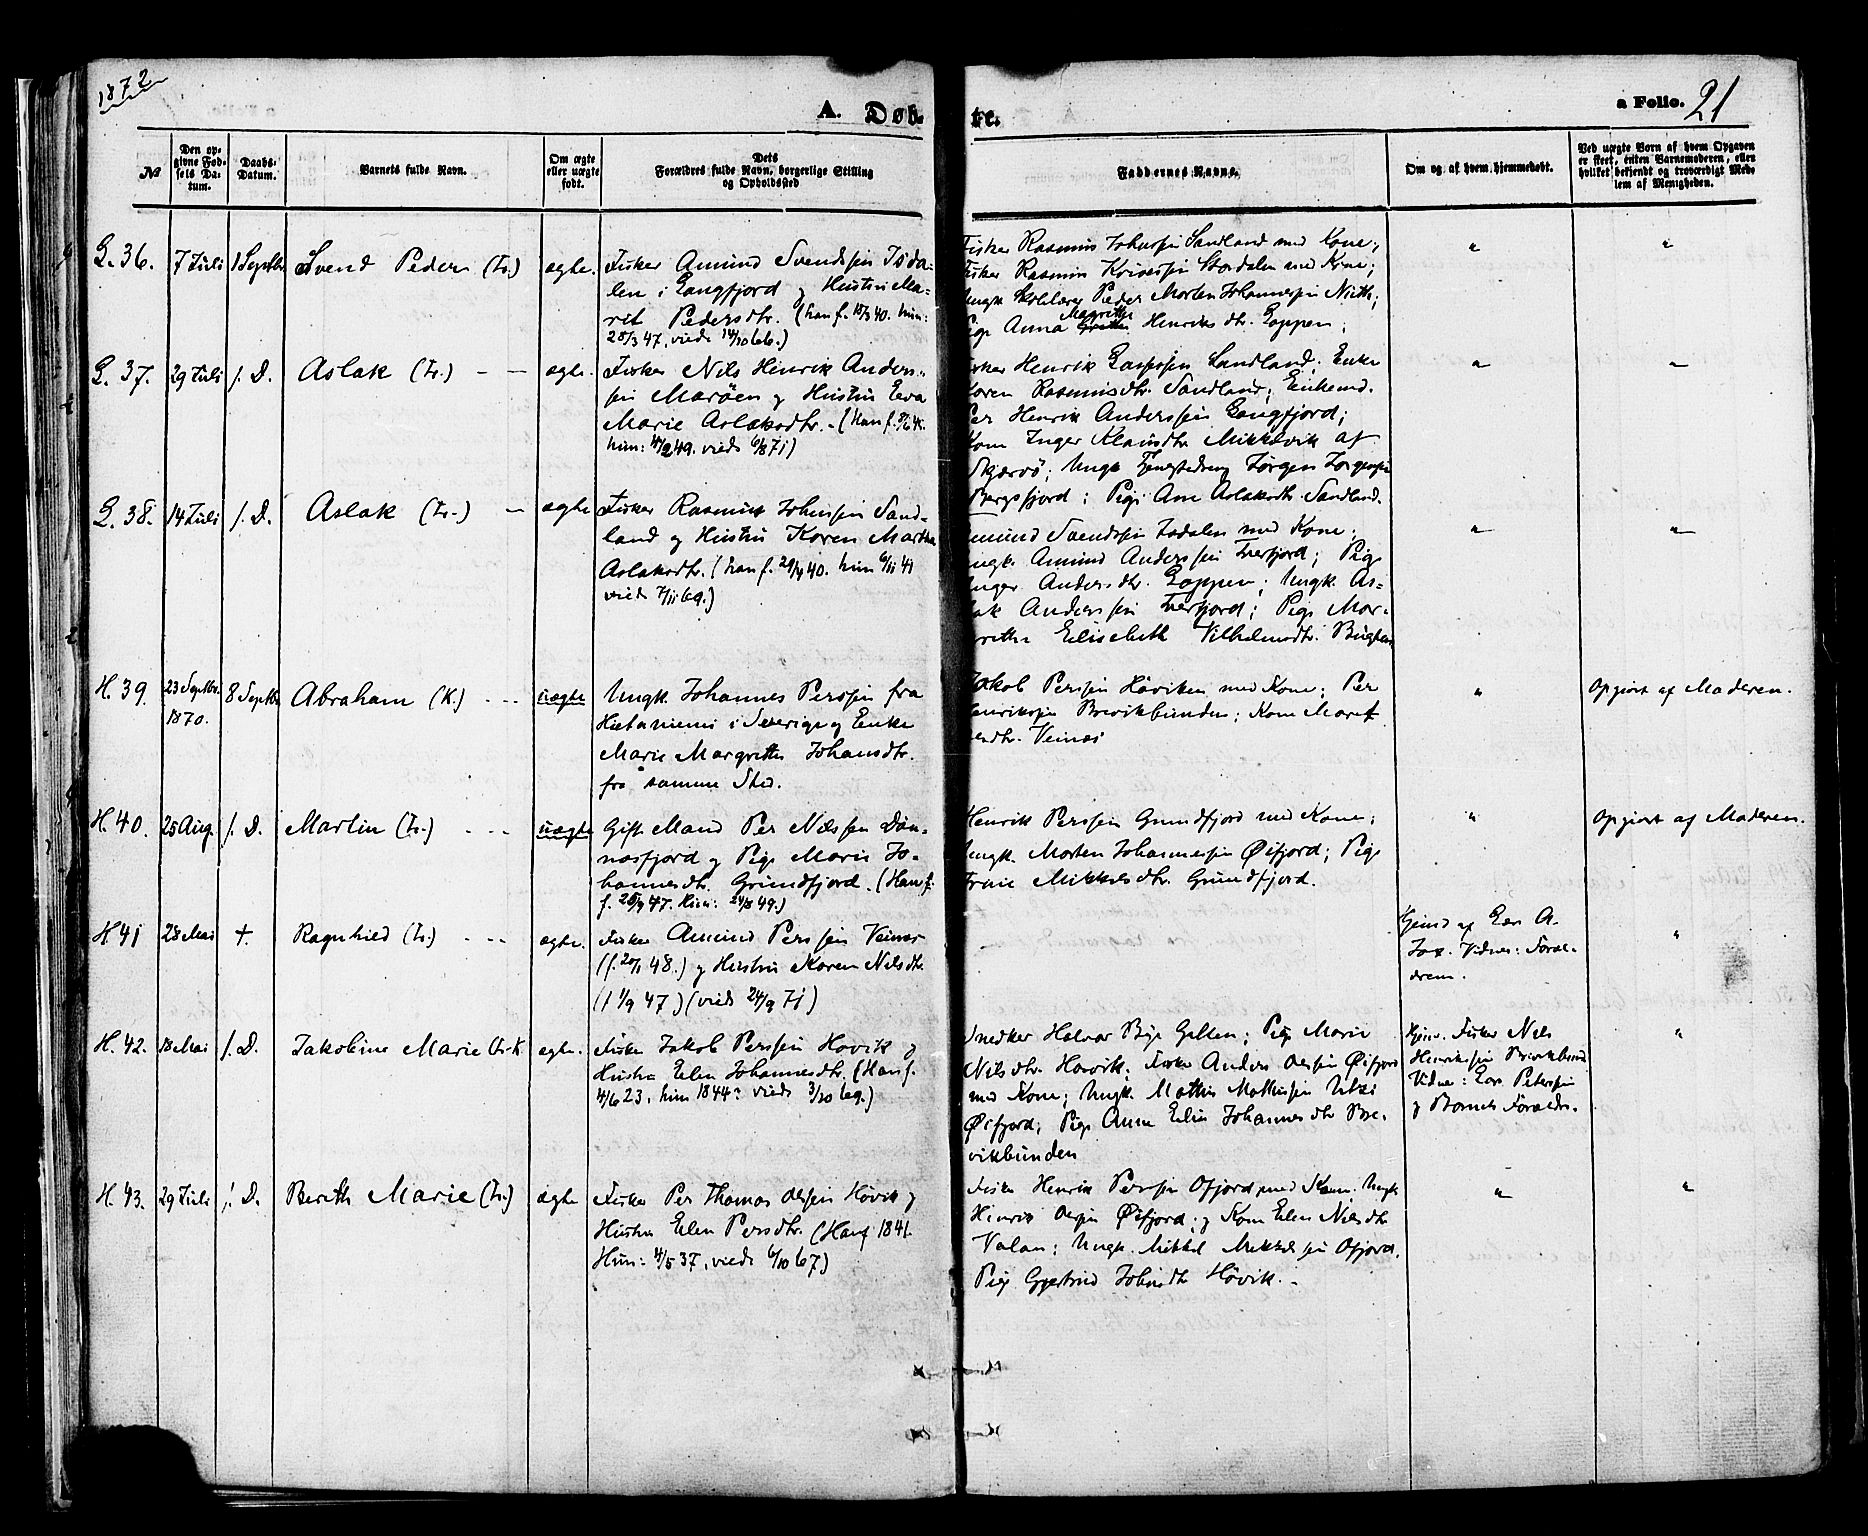 1872
A. Døb-
te.
a Folio. 21
№
Den op-
givne Fød-
sels Da-
tum.
Daabs-
Datum.
Barnets fulde Navn.
Om ægte
eller uægte
født.
Dets
Forældres fulde Navn, borgerlige Stilling
og Opholdssted
Faddernes Navne.
Om og af hvem hjemmedøbt.
Ved uægte Børn af hvem Opgaven
er skeet, enten Barnemoderen, eller
hvilket bekjendt og troværdigt Med-
lem af Menigheden.
L. 36. 7 Juli 1 Septbr Svend Peder (Lr.) ægte.
Fisker Amund Svendssen Isda-
len i Langfjord og Hustru Ma-
rit Pedersdtr. (han f. 40. hun:
28/3 47, viede 14/10 66.)
Fisker Rasmus Johnssen Sandland med Kone;
Fisker Rasmus Stordalen med Kone;
Ungk Skolelærer Peder Morten Johannessen
Pige Anna Magrethe Henriks dtr. Loppen;
" "
L. 37. 29 Juli s. D. Aslak (Lr.) — — ægte.
Fisker Nils Henrik Anders-
sen Marøen og Hustru Eva
Marie Aslaksdtr. - (han f.
hun: 49. viede 6/8 71)
Henrik Sandland; Enke
Karen Rasmusdtr. Sandland; Enkemd.
Per Henrik Anderssen Langfjord;
Kone Inger Klausdtr Mikkelvik af
Skjærvö; Ungk Tjenestedreng Jörgen Jörgenssen
Bergsfjord; Pige Ane Aslaksdtr. Sandland.
" "
L. 38. 14 Juli s. D. Aslak (Lr.) — ægte
Fisker Rasmus Johnssen Sand-
land og Hustru Karen Martha
Aslaksdtr. (han f. 40. hun 6/11 41
viede 7/11 69.)
Amund Svendssen Isdalen med Kone;
Ungk. Amund Anderssen Tverfjord; Pige
Inger Anders dtr. Loppen; Ungk. As-
lak Anderssen Tverfjord; Pige Mar-
grethe Elisebeth Vilhelmsdtr. Bugten
" "
H. 39. 23 Septbr. 8 Septbr Abraham (K.) - - - uægte
1870.
Ungk. Johannes Perssen fra
Hietaniemi i Sverige og Enke
Marie Margrethe Johansdtr.
fra samme Sted.
Jakob Perssen Höviken med Kone; Per
Henrikssen Brevikbunden; Kone Maret
Veines
" Opgivet af Moderen.
H. 40. 25 Aug. s. D. Martin (Lr.) - - - uægte
Gift Mand Per Nilssen Døn-
næsfjord og Pige Marie Jo-
hannesdtr. Grundfjord. (Han
f. 47. Hun: 49.)
Henrik Perssen Grundfjord med Kone;
Ungk. Morten Johannessen Øifjord; Pige
Mikkelsdtr. Grundfjord.
" Opgivet af Moderen.
H. 41 28 Mai +. Ragnhild (Lr.) - - - ægte.
Fisker Amund Perssen Veines
(f. 20/1 48.) og Hustru Karen Nilsdtr.
(f 1/9 47) (viede 24/9 71)
Hjemd af Lars A.
Vidner: Foræl-
drene.
"
H. 42. 18 Mai s. D. Jakobine Marie (Lr.K ægte.
Fisker Jakob Perssen Hövik og
Hustru Elen Johannesdtr. (Han f.
4/6 23, hun 1844: viede 3/10 69.)
Snedker Halvor Galten; Pige Marie
Nilsdtr. Hövik; Fisker Anders Olessen Øifjord
med Kone; Ungk. Mathis Mathissen Utsi
Øifjord; Pige Anne Elen Johannes dtr Bre-
vikbunden
Hjem. Fisker Nils
Henrikssen Brevikbund
Vidne: Lars Peterssen
og Barnets Foræld.
"
H. 43. 29 Juli s. D. Berith Marie (Lr.) ægte
Fisker Per Thomas Olessen Hövik og
Hustru Elen Persdtr. (Han f 1841.
Hun: 4/5 37, viede 6/10 67)
Fisker Henrik Perssen Öfjord med Kone; Ungk
Henrik Olessen Øifjord; og Kone Elen Nilsdtr
Valan; Ungk. Mikkel Mikkelssen Öfjord.
Pige Gjertrud Johnsdtr Hövik. -
" "